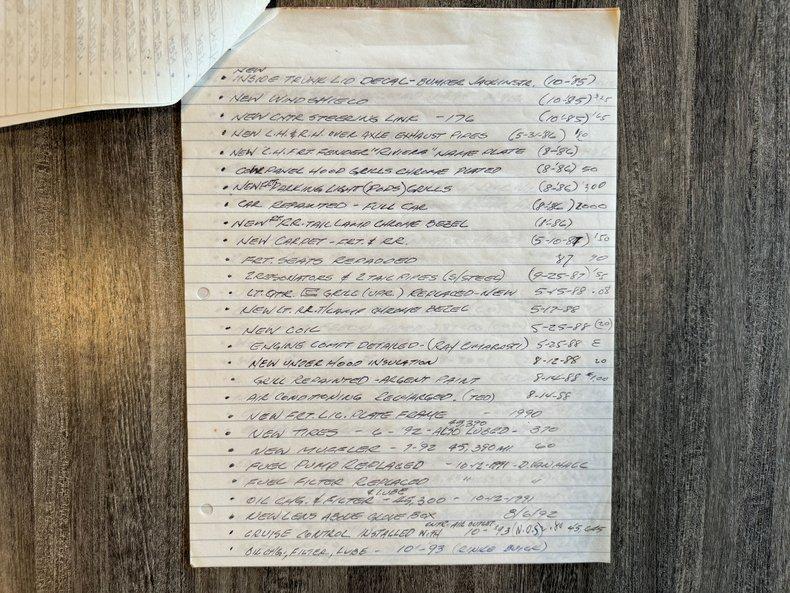 NEW
• INSIDE TRUNK LID DECAL-BUMPER JACK INSTR. (10-'85)
• NEW WINDSHIELD (10-'85)
• NEW CNTR STEERING LINK -176 (10-'85)
• NEW L.H. & R.H. OVER AXLE EXHAUST PIPES (5-31-86)
• NEW L.H. FRT. FENDER "RIVIERA" NAME PLATE (8-'86)
• PANEL HOOD GRILLS CHROME PLATED (8-'86) 50
• NEW FRT PARKING LIGHT (PODS) GRILLS (8-'86) 300
• CAR REPAINTED - FULL CAR (8-'86) 2000
• NEW RT RR. TAIL LAMP CHROME BEZEL (8-'86)
• NEW CARPET - FRT. & RR. (5-10-87) 150
• FRT. SEATS REPADDED '87 90
• 2 RESONATORS & 2 TAIL PIPES (S/STEEL) (9-25-87)
• LT. QTR. GRILL REPLACED-NEW 5-15-88
• NEW LT. RR. T/LAMP CHROME BEZEL 5-17-88
• NEW COIL 5-25-88 (20)
• ENGINE COMPT DETAILED - (RAY CIMAROSTI) 5-25-88
• NEW UNDER HOOD INSULATION 8-12-88 20
• GRILL REPAINTED - ARGENT PAINT 8-14-88 $100
• AIR CONDITIONING RECHARGED. (TED) 8-14-88
• NEW FRT. LIC. PLATE FRAME - 1990
• NEW TIRES - 6 - 92 - ALSO LUBED - 370
45,390
• NEW MUFFLER - 7-92 45,390 MI 60
• FUEL PUMP REPLACED - 10-12-1991 - D.
• FUEL FILTER REPLACED " "
& LUBE
• OIL CHG. & FILTER - 45,300 - 10-12-1991
• NEW LENS ABOVE GLOVE BOX 8/6/92
CNTR. AIR OUTLET
• CRUISE CONTROL INSTALLED WITH 10-'93 (N.O.S) 45,645
• OIL CHG, FILTER, LUBE - 10'-93 (RINKE BUICK)